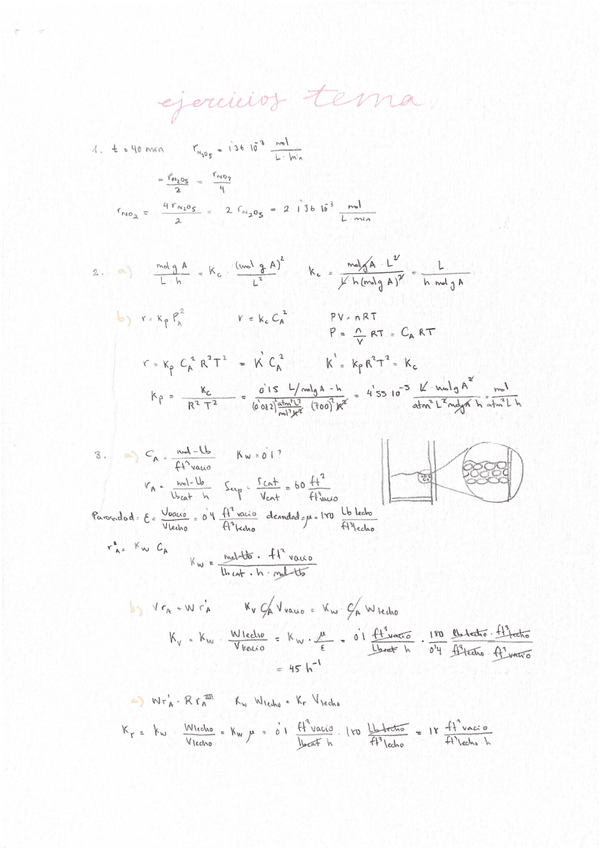 ejercicios tema
1. t = 40 min r_N2O5 = 1'36·10^-3 mol / L·min
-r_N2O5 / 2 = r_NO2 / 4
r_NO2 = 4 r_N2O5 / 2 = 2 r_N2O5 = 2 1'36 10^-3 mol / L min
2. a) molgA / L h = Kc · (molgA)^2 / L^2 Kc = molgA · L^2 / L h (molgA)^2 = L / h molgA
b) r = Kp P_A^2 r = Kc C_A^2 PV = nRT
P = n/V RT = C_A RT
r = Kp C_A^2 R^2T^2 = K' C_A^2 K' = Kp R^2T^2 = Kc
Kp = Kc / R^2T^2 = 0'15 L/molgA·h / (0'082)^2 atm^2L^2/mol^2K^2 (700)^2 K^2 = 4'55 10^-5 L · molgA^2 / atm^2L^2 molgA h = mol / atm^2 L h
3. a) C_A = mol-lb / ft^3 vacio Kw = 0'1
r_A = mol-lb / lbcat h Sesp = Scat / Vcat = 60 ft^2 / ft^3 vacio
Porosidad = ε = Vvacio / Vlecho = 0'4 ft^3 vacio / ft^3 lecho densidad = μ = 180 Lb lecho / ft^3 lecho
r'_A = Kw C_A
Kw = mol-lb · ft^3 vacio / lbcat · h · mol-lb
b) V r_A = W r'_A Kv C_A Vvacio = Kw C_A Wlecho
Kv = Kw · Wlecho / Vvacio = Kw · μ / ε = 0'1 ft^3 vacio / Lbcat h · 180 / 0'4 Lb lecho · ft^3 lecho / ft^3 lecho · ft^3 vacio
= 45 h^-1
c) W r'_A = R r_A''' Kw Wlecho = Kr Vlecho
Kr = Kw · Wlecho / Vlecho = Kw μ = 0'1 ft^3 vacio / lbcat h · 180 Lb lecho / ft^3 lecho = 18 ft^3 vacio / ft^3 lecho h